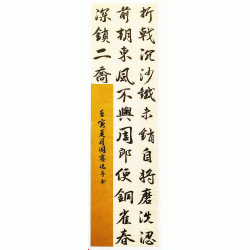 折戟沉沙鐵未銷自將磨洗認
前朝東風不與周郎便銅雀春
深鎖二喬
壬寅夏月